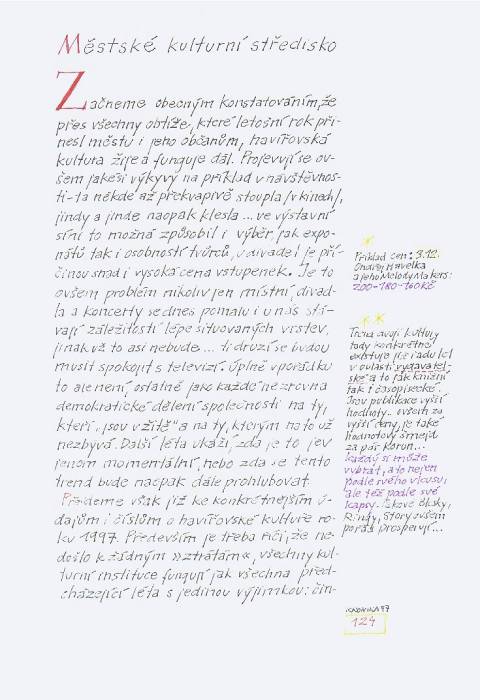 Městské kulturní středisko
Začneme obecným konstatováním, že
přes všechny obtíže, které letošní rok při-
nesl městu i jeho občanům, havířovská
kultura žije a funguje dál. Projevují se ov-
šem jakési výkyvy na příklad v návštěvnos-
ti - ta někde až překvapivě stoupla /v kinech/,
jindy a jinde naopak klesla ... ve výstavní
síni to možná způsobil i výběr jak expo-
nátů tak i osobností tvůrců, v divadel je pří-
činou snad i vysoká cena vstupenek. Je to
ovšem problém nikoliv jen místní, divad-
la a koncerty se dnes pomalu i u nás stá-
vají záležitostí lépe situovaných vrstev,
jinak už to asi nebude... ti druzí se budou
muset spokojit s televizí. Úplně v pořádku
to ale není, ostatně jako každé nezrovna
demokratické dělení společnosti na ty,
kteří „jsou v žitě" a na ty, kterým na to už
nezbývá. Další léta ukáží, zda je to jev
jenom momentální, nebo zda se tento
trend bude naopak dále prohlubovat.
Přejdeme však již ke konkrétnějším ú-
dajům i číslům o havířovské kultuře ro-
ku 1997. Především je třeba říci, že ne-
došlo k žádným »ztrátám«, všechny kul-
turní instituce fungují jak všechna před-
cházející léta s jedinou výjimkou: čin-
*
Příklad cen: 3.12.
Ondřej Havelka
a jeho Melody Makers:
200-180-160 Kč
**
Trend dvojí kultury
tady konkrétně
existuje již řadu let
v oblasti vydavatel
ské a to jak knižní
tak i časopisecké.
Jsou publikace vyšší
hodnoty.. ovšem za
vyšší ceny, je také
hodnotový šmejd
za pár korun...
každý si může
vybrat, a to nejen
podle svého vkusu,
ale též podle své
kapsy. Blesky,
Rindy, Story ovšem
pořád prosperují...
97
124